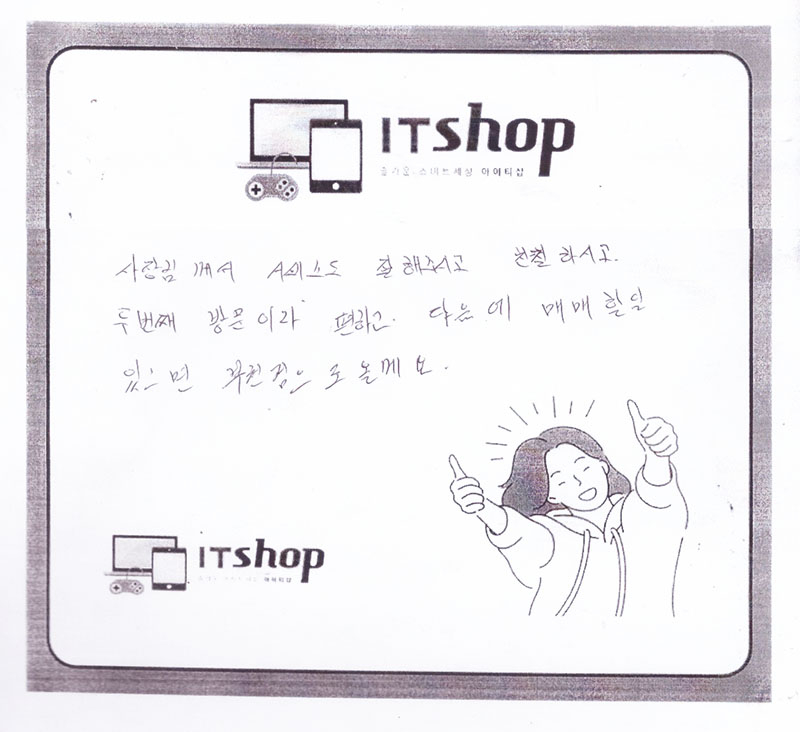 ITshop
즐거운 스마트세상 아이티샵
사장님 께서 A세스도 잘해주시고 친절하시고.
두번째 방문이라 편하고. 다음에 매매할일
있으면 부천점으로 올께요.
ITshop
아이티샵